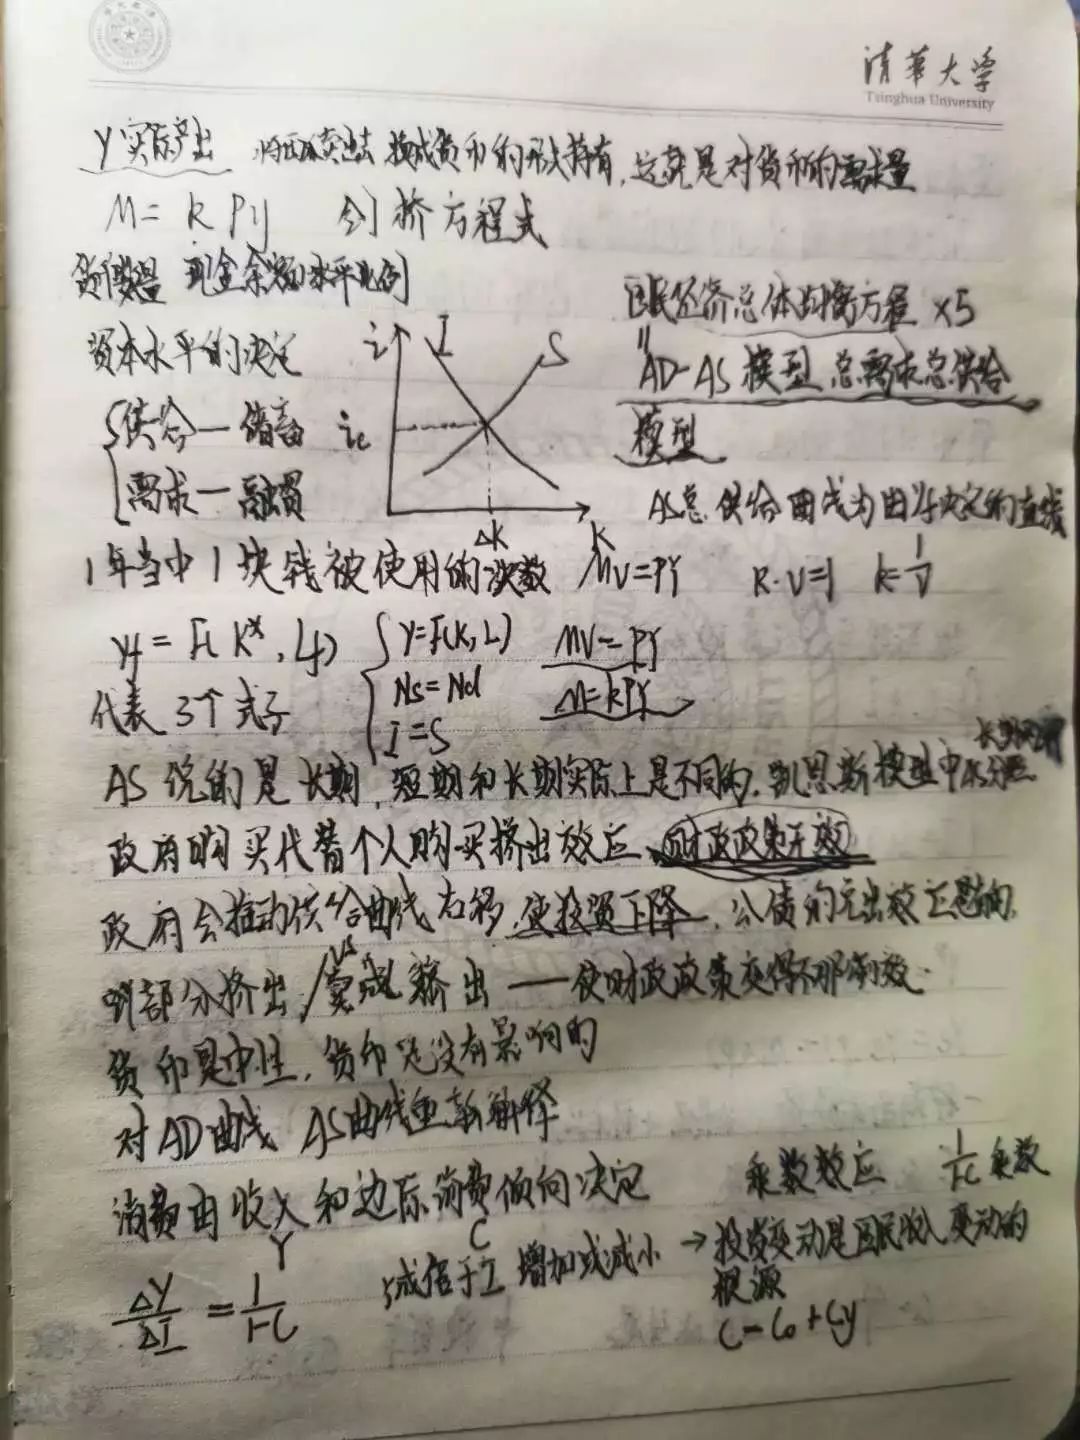 清華大学
Tsinghua University
Y实际产出 卖出去 换成货币的形式持有,这就是对货币的需求量
M = k P y 剑桥方程式
货币数量 现金余额的水平比例
国民经济总体均衡方程 ×5
资本水平的决定 i I S
AD-AS 模型 总需求总供给
供给—储蓄 ie
模型
需求—融资
AS总供给曲线为由yf决定的直线
ΔK K
1年当中1块钱被使用的次数 MV=PY k·V=1 k=1/V
yf = F(K*, Lf) Y=F(K,L) MV=PY
代表3个式子 Ns=Nd M=kPY
I=S
AS说的是长期,短期和长期实际上是不同的,凯恩斯模型中
政府购买代替个人购买挤出效应,财政政策无效
政府会推动供给曲线右移,使投资下降,公债的
部分挤出 VS 完成挤出——使财政政策变得不那么有效
货币是中性,货币是没有影响的
对AD曲线 AS曲线重新解释
消费由收入和边际消费倾向决定 乘数效应 1/1-C 乘数
Y C
ΔY/ΔI = 1/1-C 增加或减小 → 投资变动是国民收入变动的
根源
C=C0+Cy